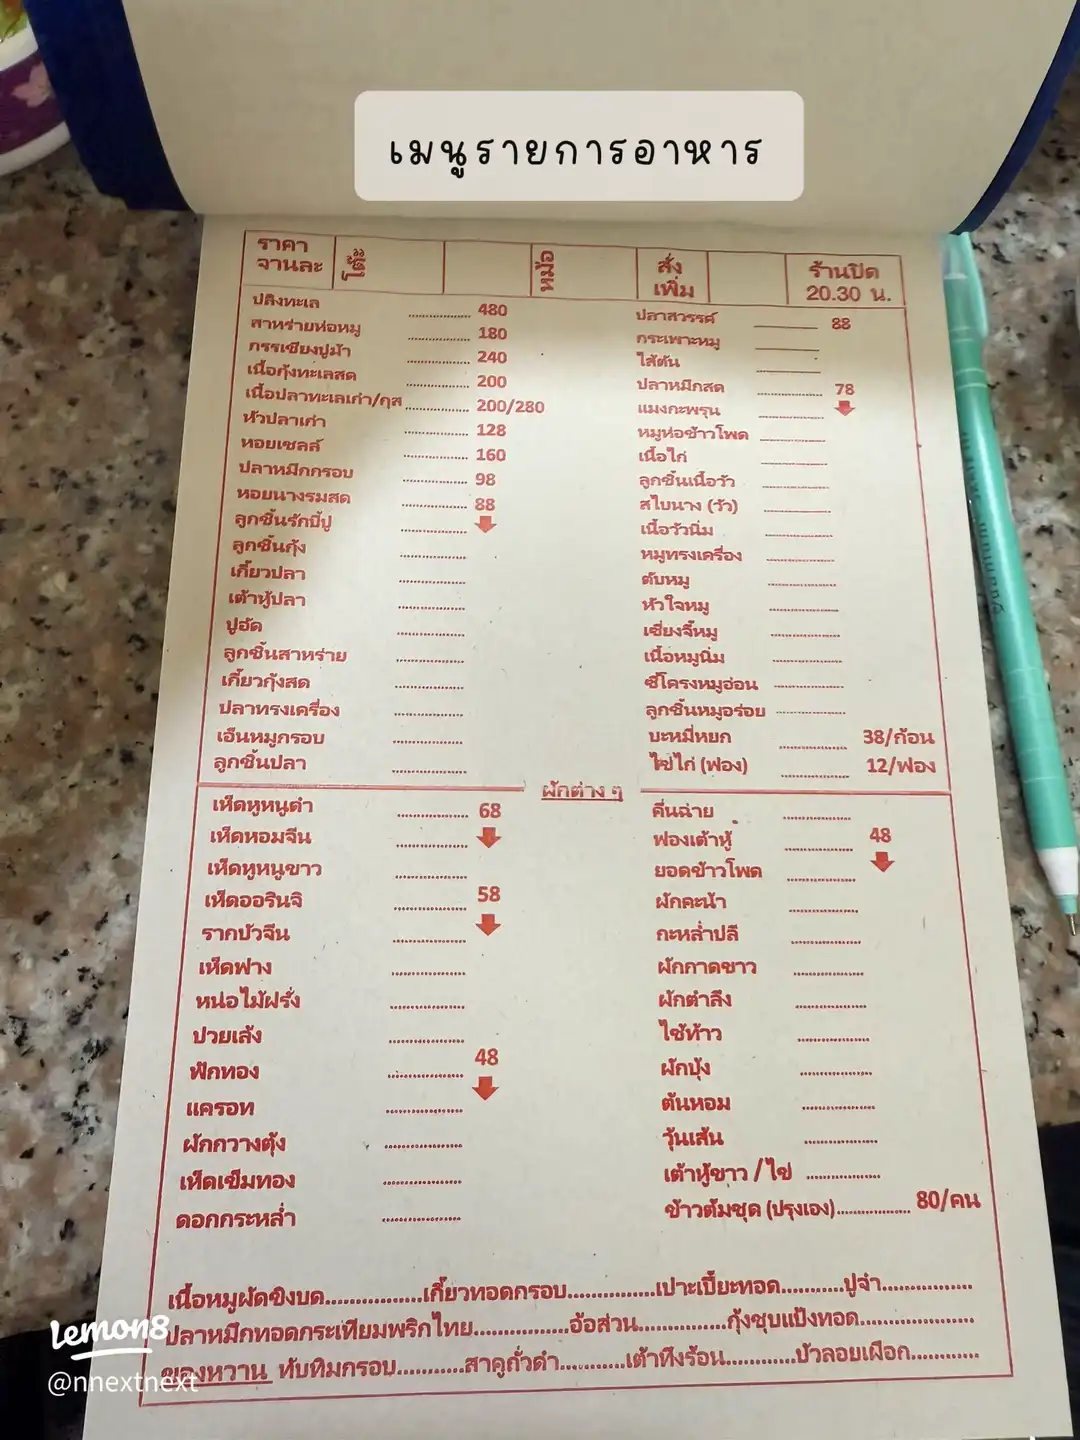 เมนูรายการอาหาร
ราคา
จานละ
โต๊ะ
หม้อ
สั่ง
เพิ่ม
ร้านปิด
20.30 น.
ปลิงทะเล .................. 480
สาหร่ายห่อหมู .................. 180
กรรเชียงปูม้า .................. 240
เนื้อกุ้งทะเลสด .................. 200
เนื้อปลาทะเลเก๋า/กุส .................. 200/280
หัวปลาเก๋า .................. 128
หอยเชลล์ .................. 160
ปลาหมึกกรอบ .................. 98
หอยนางรมสด .................. 88
ลูกชิ้นรักบี้ปู ..................
ลูกชิ้นกุ้ง ..................
เกี๊ยวปลา ..................
เต้าหู้ปลา ..................
ปูอัด ..................
ลูกชิ้นสาหร่าย ..................
เกี๊ยวกุ้งสด ..................
ปลาทรงเครื่อง ..................
เอ็นหมูกรอบ ..................
ลูกชิ้นปลา ..................
ปลาสวรรค์ .................. 88
กระเพาะหมู ..................
ไส้ตัน ..................
ปลาหมึกสด .................. 78
แมงกะพรุน ..................
หมูห่อข้าวโพด ..................
เนื้อไก่ ..................
ลูกชิ้นเนื้อวัว ..................
สไบนาง (วัว) ..................
เนื้อวัวนิ่ม ..................
หมูทรงเครื่อง ..................
ตับหมู ..................
หัวใจหมู ..................
เซี่ยงจี๊หมู ..................
เนื้อหมูนิ่ม ..................
ซี่โครงหมูอ่อน ..................
ลูกชิ้นหมูอร่อย ..................
บะหมี่หยก .................. 38/ก้อน
ไข่ไก่ (ฟอง) .................. 12/ฟอง
ผักต่าง ๆ
เห็ดหูหนูดำ .................. 68
เห็ดหอมจีน ..................
เห็ดหูหนูขาว ..................
เห็ดออรินจิ .................. 58
รากบัวจีน ..................
เห็ดฟาง ..................
หน่อไม้ฝรั่ง ..................
ปวยเล้ง ..................
ฟักทอง .................. 48
แครอท ..................
ผักกวางตุ้ง ..................
เห็ดเข็มทอง ..................
ดอกกระหล่ำ ..................
คื่นฉ่าย ..................
ฟองเต้าหู้ .................. 48
ยอดข้าวโพด ..................
ผักคะน้า ..................
กะหล่ำปลี ..................
ผักกาดขาว ..................
ผักตำลึง ..................
ไชท้าว ..................
ผักบุ้ง ..................
ต้นหอม ..................
วุ้นเส้น ..................
เต้าหู้ขาว / ไข่ ..................
ข้าวต้มชุด (ปรุงเอง).................. 80/คน
เนื้อหมูผัดขิงบด..................เกี๊ยวทอดกรอบ..................เปาะเปี๊ยะทอด............ปูจ๋า..................
ปลาหมึกทอดกระเทียมพริกไทย..................อ้อส่วน..................กุ้งชุบแป้งทอด..................
ของหวาน ทับทิมกรอบ............สาคูถั่วดำ............เต้าทึงร้อน............บัวลอยเผือก............
lemon8
@nnextnext